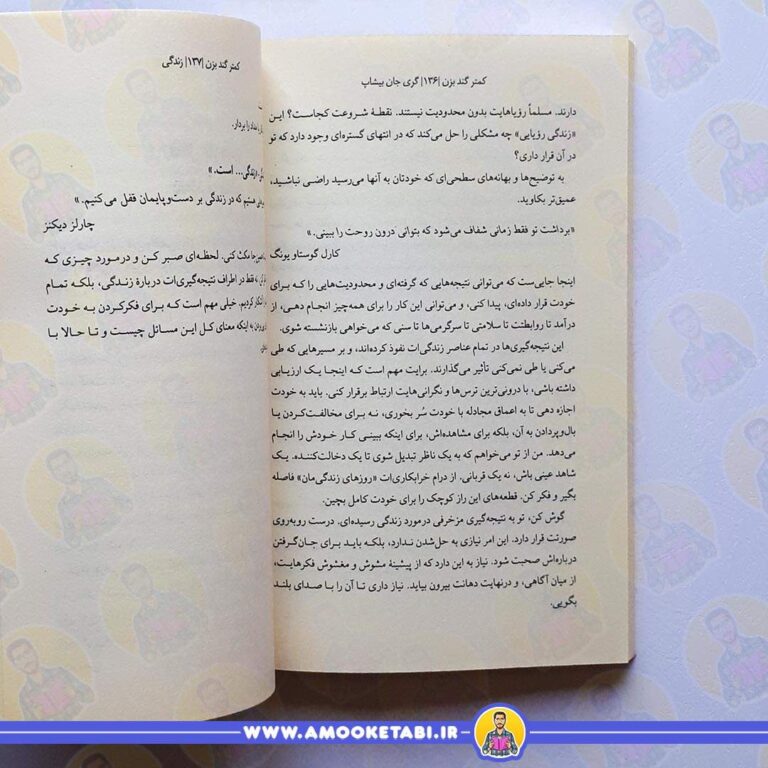 کمتر گند بزن |۱۳۶| گری جان بیشاپ
دارند. مسلماً رؤیاهایت بدون محدودیت نیستند. نقطهٔ شروعت کجاست؟ این
«زندگی رؤیایی» چه مشکلی را حل می‌کند که در انتهای گستره‌ای وجود دارد که تو
در آن قرار داری؟
به توضیح‌ها و بهانه‌های سطحی‌ای که خودتان به آنها می‌رسید راضی نباشید،
عمیق‌تر بکاوید.
«برداشت تو فقط زمانی شفاف می‌شود که بتوانی درون روحت را ببینی.»
کارل گوستاو یونگ
اینجا جایی‌ست که می‌توانی نتیجه‌هایی که گرفته‌ای و محدودیت‌هایی را که برای
خودت قرار داده‌ای، پیدا کنی، و می‌توانی این کار را برای همه‌چیز انجام دهی، از
درآمد تا روابطت تا سلامتی تا سرگرمی‌ها تا سنی که می‌خواهی بازنشسته شوی.
این نتیجه‌گیری‌ها در تمام عناصر زندگی‌ات نفوذ کرده‌اند، و بر مسیرهایی که طی
می‌کنی یا طی نمی‌کنی تأثیر می‌گذارند. برایت مهم است که اینجا یک ارزیابی
داشته باشی، با درونی‌ترین ترس‌ها و نگرانی‌هایت ارتباط برقرار کنی. باید به خودت
اجازه دهی تا به اعماق مجادله با خودت سُر بخوری، نه برای مخالفت‌کردن یا
بال‌وپردادن به آن، بلکه برای مشاهده‌اش، برای اینکه ببینی کار خودش را انجام
می‌دهد. من از تو می‌خواهم که به یک ناظر تبدیل شوی تا یک دخالت‌کننده. یک
شاهد عینی باش، نه یک قربانی. از درام خرابکاری‌ات «روزهای زندگی‌مان» فاصله
بگیر و فکر کن. قطعه‌های این راز کوچک را برای خودت کامل بچین.
گوش کن، تو به نتیجه‌گیری مزخرفی درمورد زندگی رسیده‌ای. درست روبه‌روی
صورتت قرار دارد. این امر نیازی به حل‌شدن ندارد، بلکه باید برای جان‌گرفتن
درباره‌اش صحبت شود. نیاز به این دارد که از پیشینهٔ مشوش و مغشوش فکرهایت،
از میان آگاهی، و درنهایت دهانت بیرون بیاید. نیاز داری تا آن را با صدای بلند
بگویی.
کمتر گند بزن |۱۳۷| زندگی
را بردار.
است.»
که در زندگی بر دست‌وپایمان قفل می‌کنیم.»
چارلز دیکنز
مکث کنی. لحظه‌ای صبر کن و درمورد چیزی که
فقط در اطراف نتیجه‌گیری‌ات دربارهٔ زندگی، بلکه تمام
کردیم. خیلی مهم است که برای فکرکردن به خودت
به اینکه معنای کل این مسائل چیست و تا حالا با
WWW.AMOOKETABI.IR